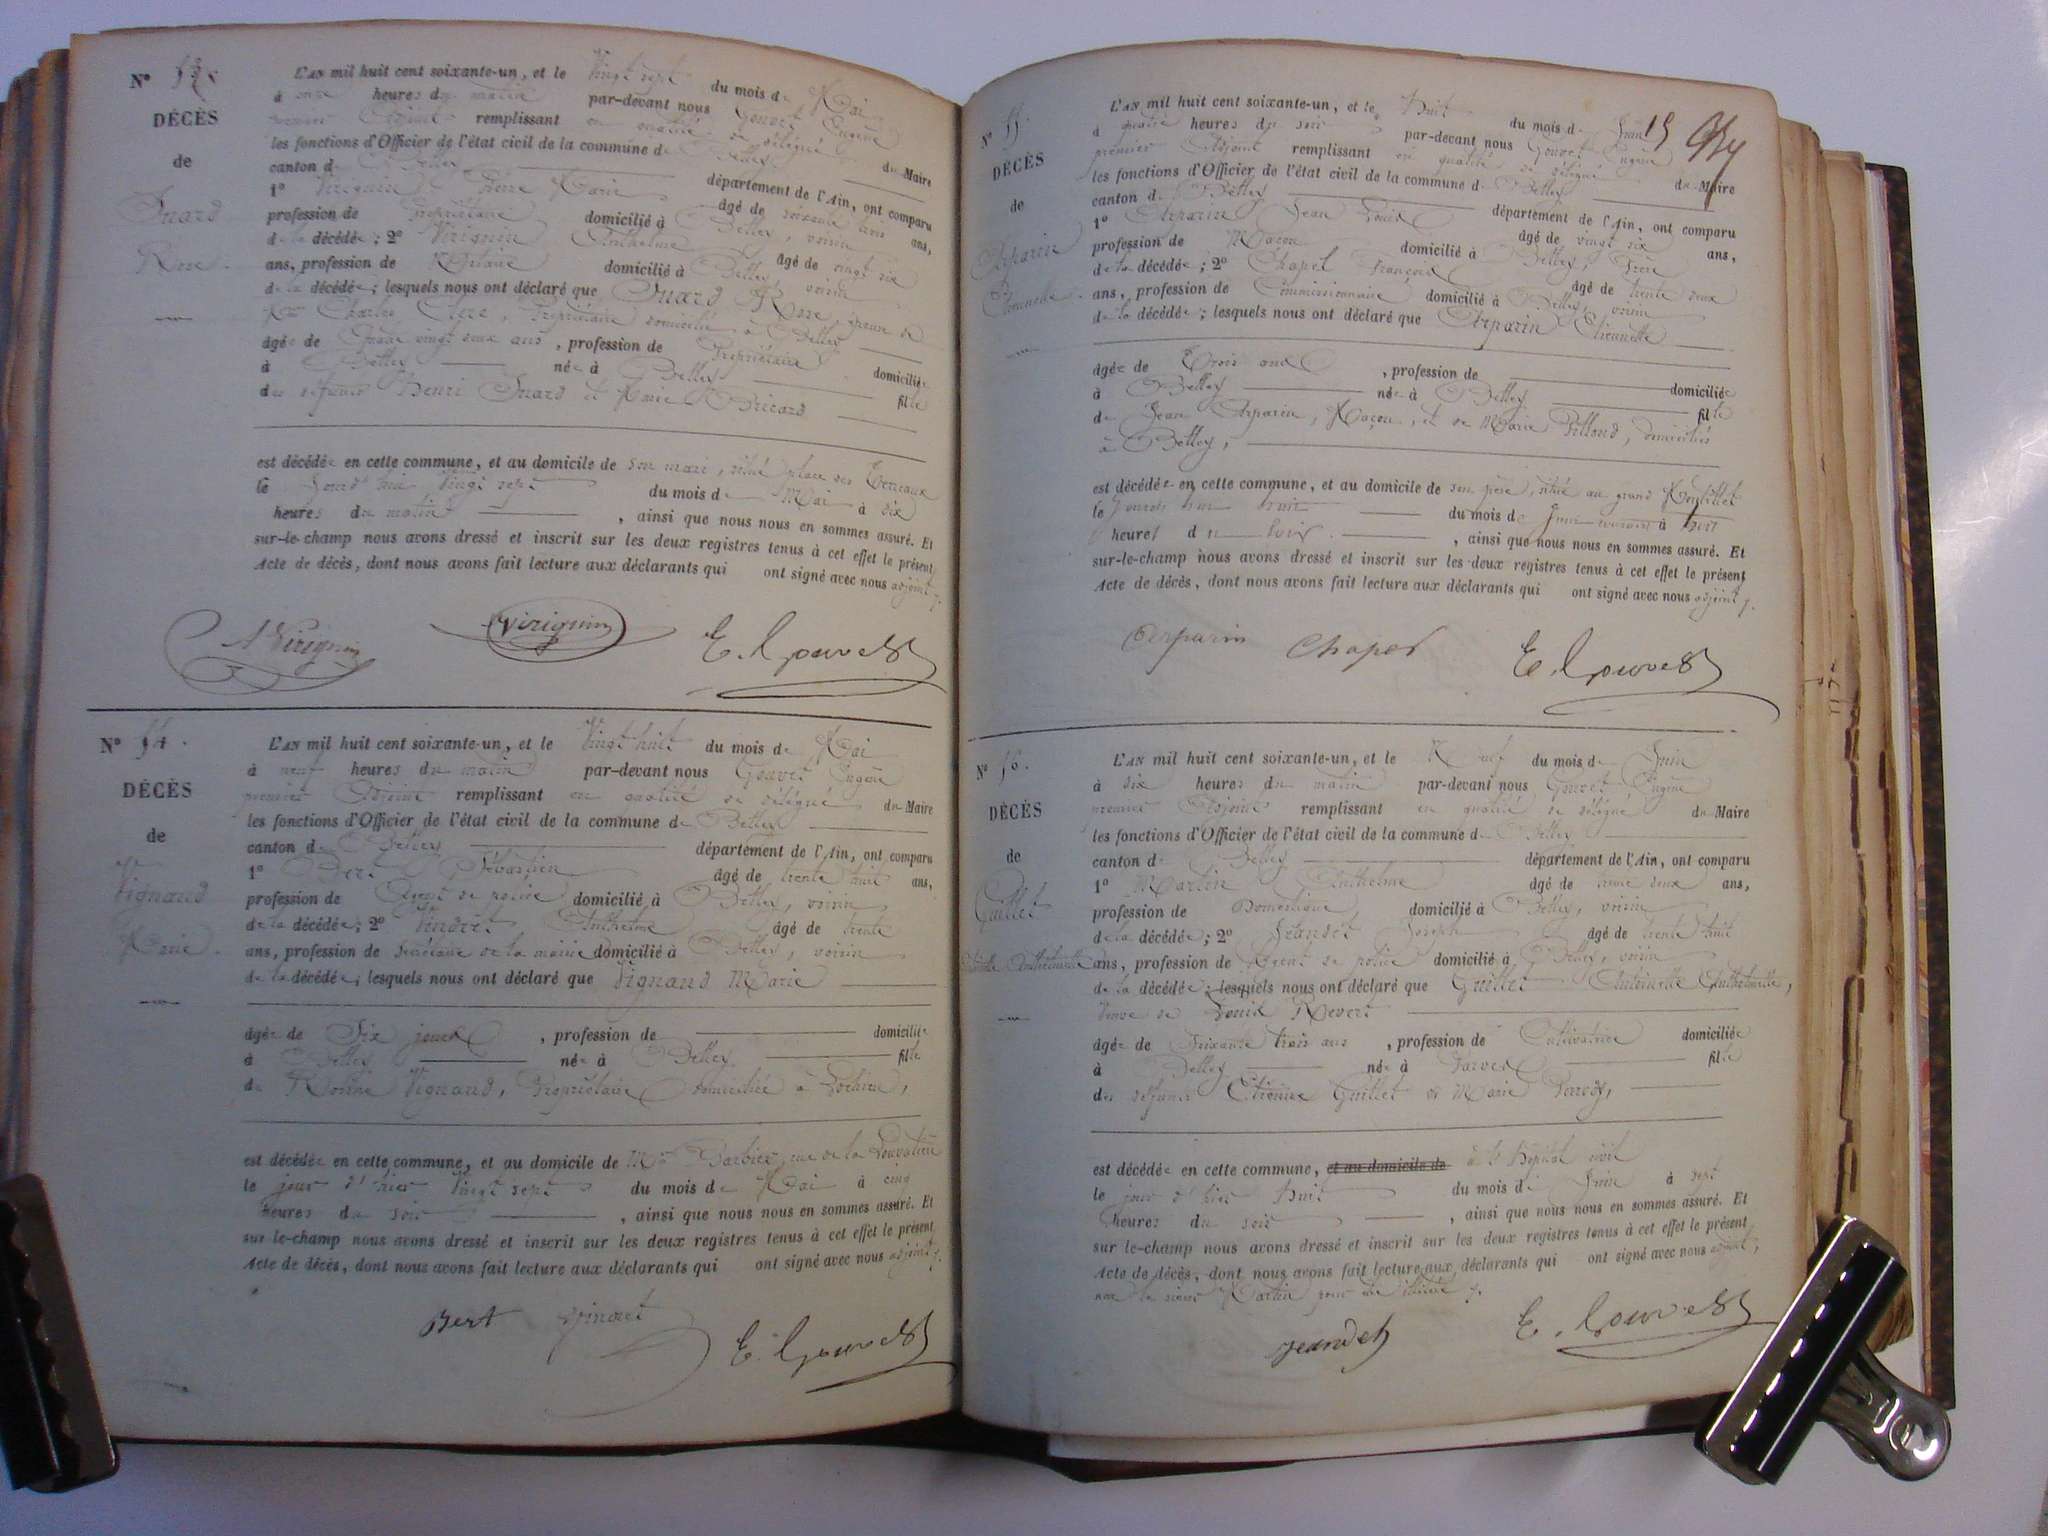 N° 53.
DÉCÈS
de
Inard
Rose.
L'AN mil huit cent soixante-un, et le Vingt sept du mois de Mai
à onze heures du matin par-devant nous Gouvet Eugène
premier Adjoint remplissant en qualité de délégué du Maire
les fonctions d'Officier de l'état civil de la commune de Belley
canton de Belley département de l'Ain, ont comparu
1° Virignin Pierre Marie âgé de soixante ans ans,
profession de Propriétaire domicilié à Belley, voisin
de la décédée ; 2° Virignin Anthelme âgé de vingt six
ans, profession de domicilié à Belley voisin
de la décédée ; lesquels nous ont déclaré que Inard Rose, épouse de
Charles Clerc, Propriétaire domicilié à Belley
âgée de Quatre vingt deux ans, profession de Propriétaire domiciliée
à Belley née à Belley fille
des défunts Henri Inard et Marie Bricard
est décédée en cette commune, et au domicile de son mari, situé place des Terreaux
le Jourd'hui Vingt sept du mois de Mai à dix
heures du matin, ainsi que nous nous en sommes assuré. Et
sur-le-champ nous avons dressé et inscrit sur les deux registres tenus à cet effet le présent
Acte de décès, dont nous avons fait lecture aux déclarants qui ont signé avec nous adjoint
A Virignin Virignin E. Gouvet
N° 54.
DÉCÈS
de
Vignand
Marie.
L'AN mil huit cent soixante-un, et le Vingt huit du mois de Mai
à neuf heures du matin par-devant nous Gouvet Eugène
premier Adjoint remplissant en qualité de délégué du Maire
les fonctions d'Officier de l'état civil de la commune de Belley
canton de Belley département de l'Ain, ont comparu
1° Bert Sébastien âgé de trente huit ans,
profession de Agent de police domicilié à Belley, voisin
de la décédée ; 2° Vindret Anthelme âgé de trente
ans, profession de Secrétaire de la mairie domicilié à Belley, voisin
de la décédée ; lesquels nous ont déclaré que Vignand Marie
âgée de Six jours, profession de domiciliée
à Belley née à Belley fille
de Vignand, Propriétaire domiciliée à
est décédée en cette commune, et au domicile de Mme Barbier, rue de la
le jour d'hier Vingt sept du mois de Mai à cinq
heures du soir, ainsi que nous nous en sommes assuré. Et
sur le-champ nous avons dressé et inscrit sur les deux registres tenus à cet effet le présent
Acte de décès, dont nous avons fait lecture aux déclarants qui ont signé avec nous adjoint
Bert Vindret E. Gouvet
15
N° 55.
DÉCÈS
de
Arparin
Etiennette.
L'AN mil huit cent soixante-un, et le huit du mois de Juin
à quatre heures du soir par-devant nous Gouvet Eugène
premier Adjoint remplissant en qualité de délégué du Maire
les fonctions d'Officier de l'état civil de la commune de Belley
canton de Belley département de l'Ain, ont comparu
1° Arparin Jean Louis âgé de vingt six ans,
profession de Maçon domicilié à Belley, Frère
de la décédée ; 2° Chapel François âgé de trente deux
ans, profession de Commissionnaire domicilié à Belley, voisin
de la décédée ; lesquels nous ont déclaré que Arparin Etiennette
âgée de Trois ans, profession de domiciliée
à Belley née à Belley fille
de Jean Arparin, Maçon, et de Marie Pilloud, domiciliés
à Belley,
est décédée en cette commune, et au domicile de son père, situé au grand
le du mois de Juin courant à
heures du soir, ainsi que nous nous en sommes assuré. Et
sur-le-champ nous avons dressé et inscrit sur les deux registres tenus à cet effet le présent
Acte de décès, dont nous avons fait lecture aux déclarants qui ont signé avec nous adjoint
Arparin Chapel E. Gouvet
N° 56.
DÉCÈS
de
Guillet
Antoinette Anthelmette
L'AN mil huit cent soixante-un, et le Neuf du mois de Juin
à dix heures du matin par-devant nous Gouvet Eugène
premier Adjoint remplissant en qualité de délégué du Maire
les fonctions d'Officier de l'état civil de la commune de Belley
canton de Belley département de l'Ain, ont comparu
1° Martin Anthelme âgé de trente deux ans,
profession de Domestique domicilié à Belley, voisin
de la décédée ; 2° Jeandet Joseph âgé de trente huit
ans, profession de Agent de police domicilié à Belley, voisin
de la décédée ; lesquels nous ont déclaré que Guillet Antoinette Anthelmette,
Veuve de Louis Revert
âgée de Soixante trois ans, profession de Cultivatrice domiciliée
à Belley née à Parves fille
des défunts Etienne Guillet et Marie Perret,
est décédée en cette commune, et au domicile de à l'hôpital civil
le jour d'hier huit du mois de Juin à sept
heures du soir, ainsi que nous nous en sommes assuré. Et
sur le-champ nous avons dressé et inscrit sur les deux registres tenus à cet effet le présent
Acte de décès, dont nous avons fait lecture aux déclarants qui ont signé avec nous adjoint,
non le sieur Martin pour être illitéré
Jeandet E. Gouvet